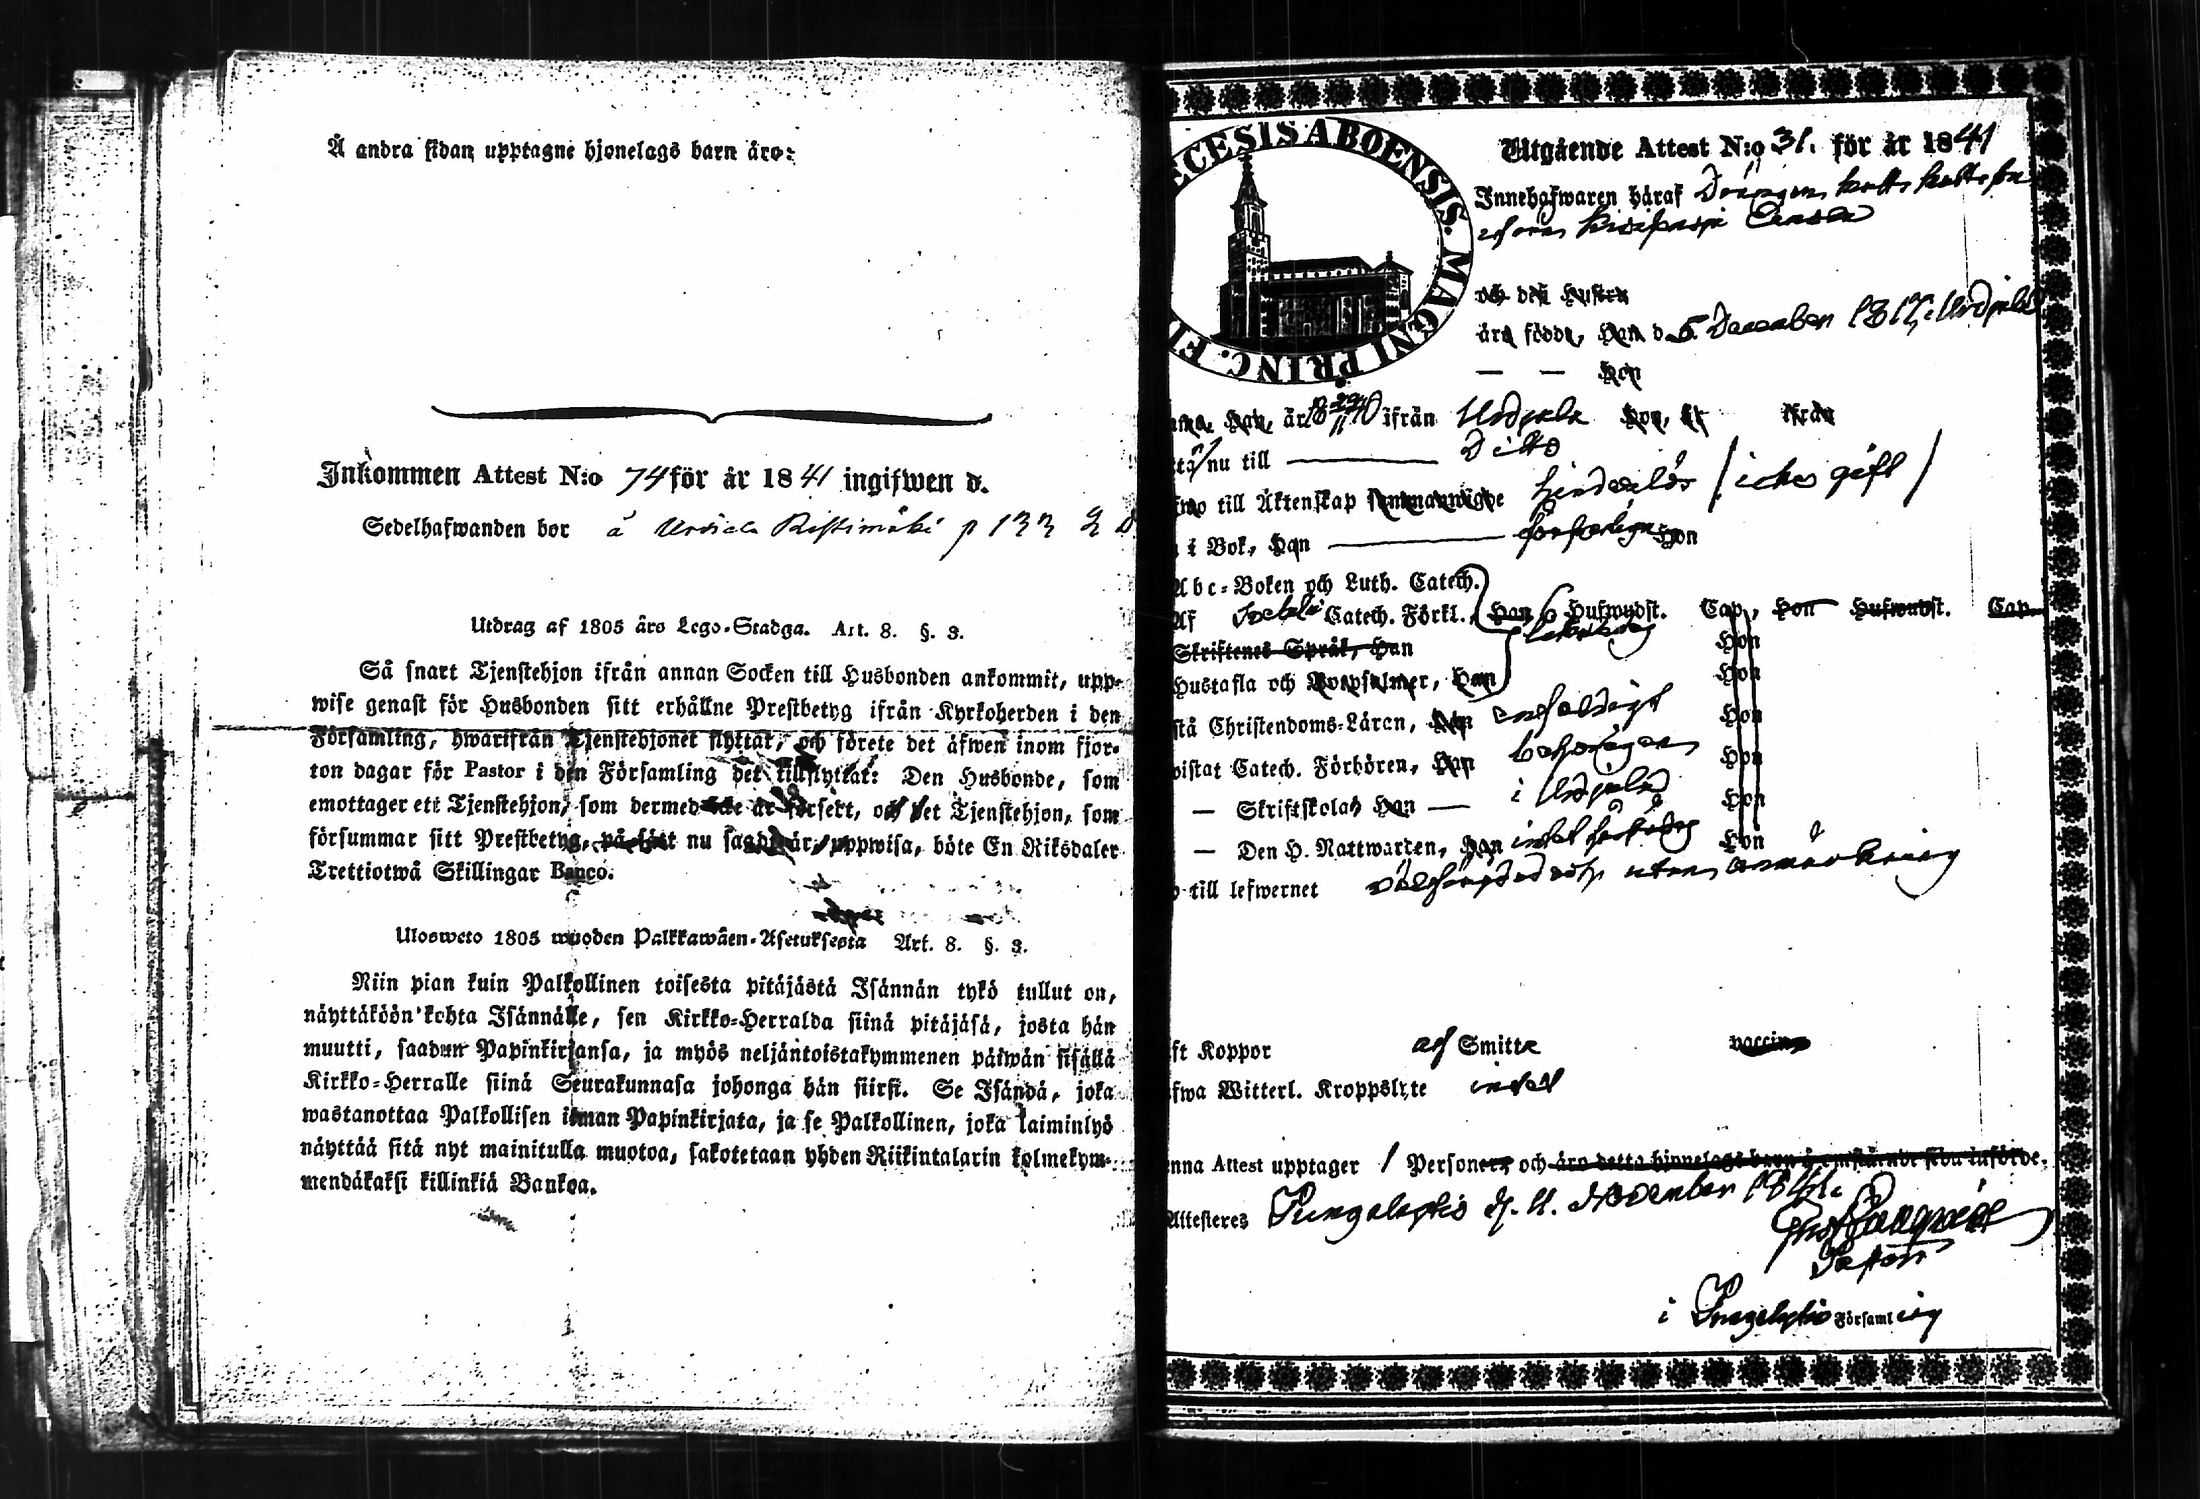 Å andra sidan upptagne hjonelags barn äro:
Inkommen Attest N:o 74 för år 1841 ingifwen d.
Sedelhafwanden bor å Urdiala Ristimäki p 133
Utdrag af 1805 års Lego-Stadga. Art. 8. §. 3.
Så snart Tjenstehjon ifrån annan Socken till Husbonden ankommit, upp-
wise genast för Husbonden sitt erhållne Prestbetyg ifrån Kyrkoherden i den
Församling, hwarifrån Tjenstehjonet flyttat, och förete det äfwen inom fjor-
ton dagar för Pastor i den Församling det tillflyttat: Den Husbonde, som
emottager ett Tjenstehjon, som dermed icke är försedt, och det Tjenstehjon, som
försummar sitt Prestbetyg, på sätt nu sagdt är, uppwisa, böte En Riksdaler
Trettiotwå Skillingar Banco.
Ulosweto 1805 wuoden Palkkawäen-Asetuksesta Art. 8. §. 3.
Niin pian kuin Palkollinen toisesta pitäjästä Isännän tykö tullut on,
näyttäköön kohta Isännälle, sen Kirkko-Herralda siinä pitäjäsä, josta hän
muutti, saadun Papinkirjansa, ja myös neljäntoistakymmenen päiwän sisällä
Kirkko-Herralle siinä Seurakunnasa johonga hän siirsi. Se Isändä, joka
wastanottaa Palkollisen ilman Papinkirjata, ja se Palkollinen, joka laiminlyö
näyttää sitä nyt mainitulla muotoa, sakotetaan yhden Riikintalarin kolmekym-
mendäkaksi killinkiä Bankoa.
ECESIS ABOENSIS. MAGNI PRINC. FI
Utgående Attest N:o 31. för år 1841
Innehafwaren häraf Drängen
ifrån
och dess hustru
äro födde, Han d. 5 December 1817 i Urdiala
— — Hon
Han, år 18 29/11 40 ifrån Urdiala Hon, år ifrån
nu till — Ditto
till Äktenskap sammanwigde hinderlös / icke gift /
i Bok, Han — försvarligen Hon
Abc-Boken och Luth. Catech.
Af Catech. Förkl., Han 6 Hufwudst. Cap, Hon Hufwudst. Cap.
Skriftenes Språk, Han Hon
Hustafla och Botpsalmer, Han Hon
stå Christendoms-Läran, Han enfaldigt Hon
wistat Catech. Förhören, Han behörigen Hon
— Skriftskolan Han — i Urdiala Hon
— Den H. Nattwarden, Han Hon
till lefwernet utan anmärkning
ft Koppor af Smitta vaccin
fwa Witterl. Kroppslyte intet
enna Attest upptager 1 Personer, och äro detta hjonelags barn å omstående sida införde.
Attesteres Pungalaitio d. 11. November 1841.
Pastor
i Pungalaitio Församling